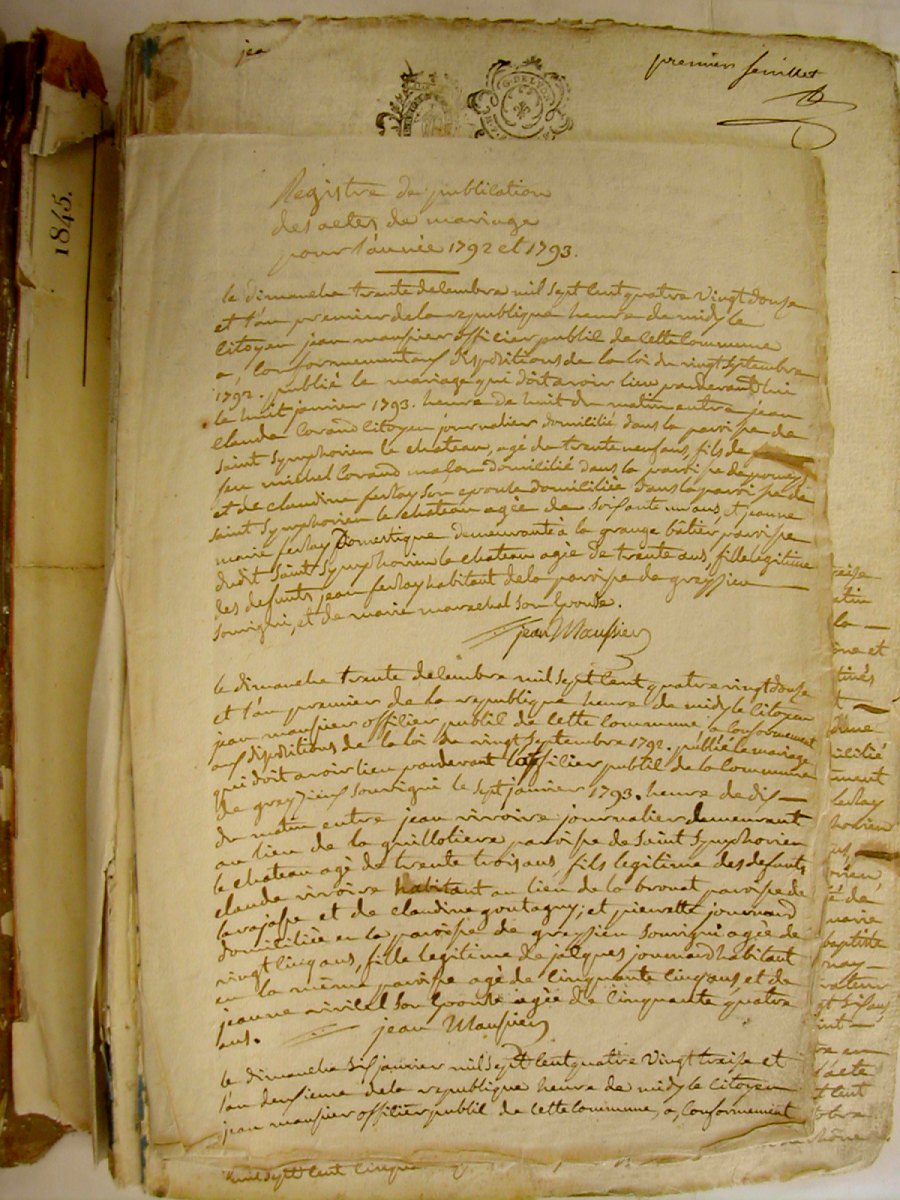 jea
premier feuillet
G. DE LYON
1845.
Registre de publication
des actes de mariage
pour l'année 1792 et 1793.
le dimanche trente decembre mil sept cent quatre vingt douse
et l'an premier de la republique heure de midy le
citoyen jean maussier officier public de cette commune
a conformement aux dispositions de la loi du vingt septembre
1792. publié le mariage qui doit avoir lieu pardevant lui
le huit janvier 1793. heure de huit du matin entre jean
claude Corand citoyen journalier domicilié dans la paroisse de
saint Symphorien le chateau, agé de trente neuf ans, fils de
feu michel Corand maçon domicilié dans la paroisse de pomeys
et de claudine ferlay son epouse domiciliée dans la paroisse de
saint Symphorien le chateau agée de soixante un ans, et jeanne
marie ferlay Domestique demeurante à la grange bâtier paroisse
dudit Saint Symphorien le chateau agée de trente ans, fille legitime
des defunts jean ferlay habitant de la paroisse de greyzieu
souvigni, et de marie marechal son Epouse.
jean Maussier
le dimanche trente decembre mil sept cent quatre vingt douse
et l'an premier de la republique heure de midy le citoyen
jean maussier officier public de cette commune, a conformement
aux dispositions de la loi du vingt septembre 1792. publié le mariage
qui doit avoir lieu pardevant l'officier public de la commune
de greyzieux souvigni le sept janvier 1793. heure de dix
du matin entre jean viricire journalier demeurant
au lieu de la guillotiere paroisse de saint Symphorien
le chateau agé de trente trois ans, fils legitime des defunts
claude viricire habitant au lieu de la brouat paroisse de
larajasse et de claudine goutagny; et pierrette journoud
domiciliée en la paroisse de greyzieu souvigni agée de
vingt cinq ans, fille legitime de jacques journoud habitant
en la même paroisse agé de cinquante cinq ans, et de
jeanne viricel son Epouse agée de cinquante quatre
ans. jean Maussier
le dimanche six janvier mil sept cent quatre vingt treise et
l'an deuxieme de la republique heure de midy le citoyen
jean maussier officier public de cette commune, a, conformement
mil sept cent cinq